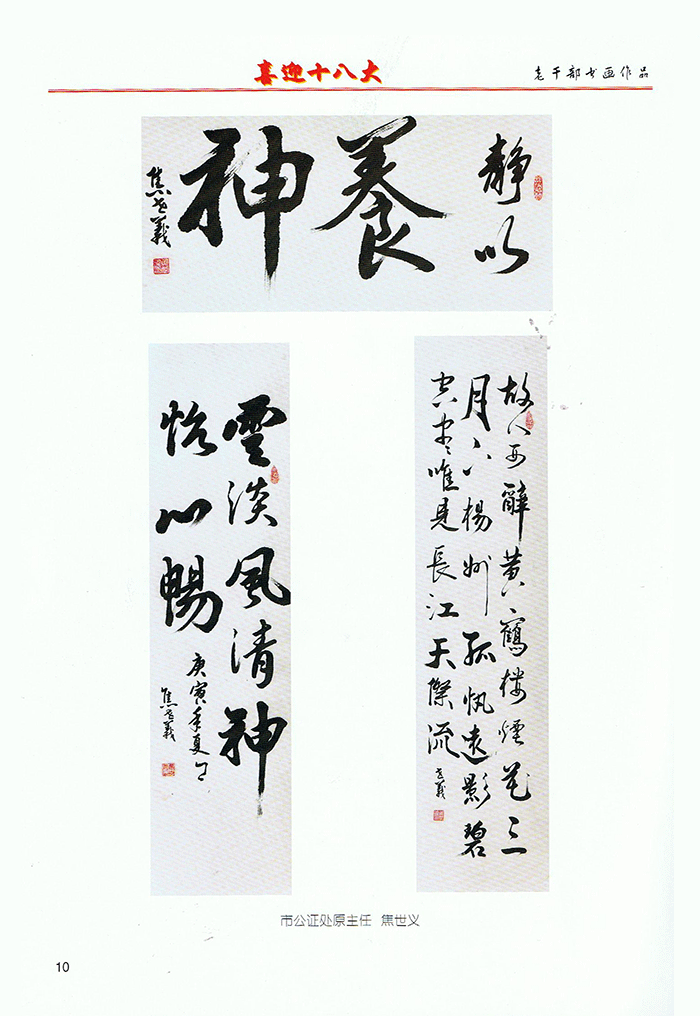 喜迎十八大
老干部书画作品
靜以
養
神
焦世義
故人西辭黄鶴楼煙花三
月下楊州孤帆遠影碧
空盡唯見長江天際流
世義
雲淡風清神
怡心暢
庚寅年夏日
焦世義
市公证处原主任 焦世义
10